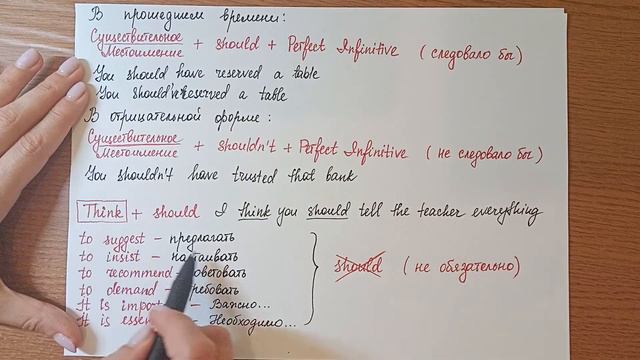 В прошедшем времени:
Существительное
Местоимение + should + Perfect Infinitive (следовало бы)
You should have reserved a table
You should've reserved a table
В отрицательной форме:
Существительное
Местоимение + shouldn't + Perfect Infinitive (не следовало бы)
You shouldn't have trusted that bank
Think + should I think you should tell the teacher everything
to suggest – предлагать
to insist – настаивать
to recommend – советовать
to demand – требовать
It is import – Важно...
It is essen Необходимо...
should (не обязательно)